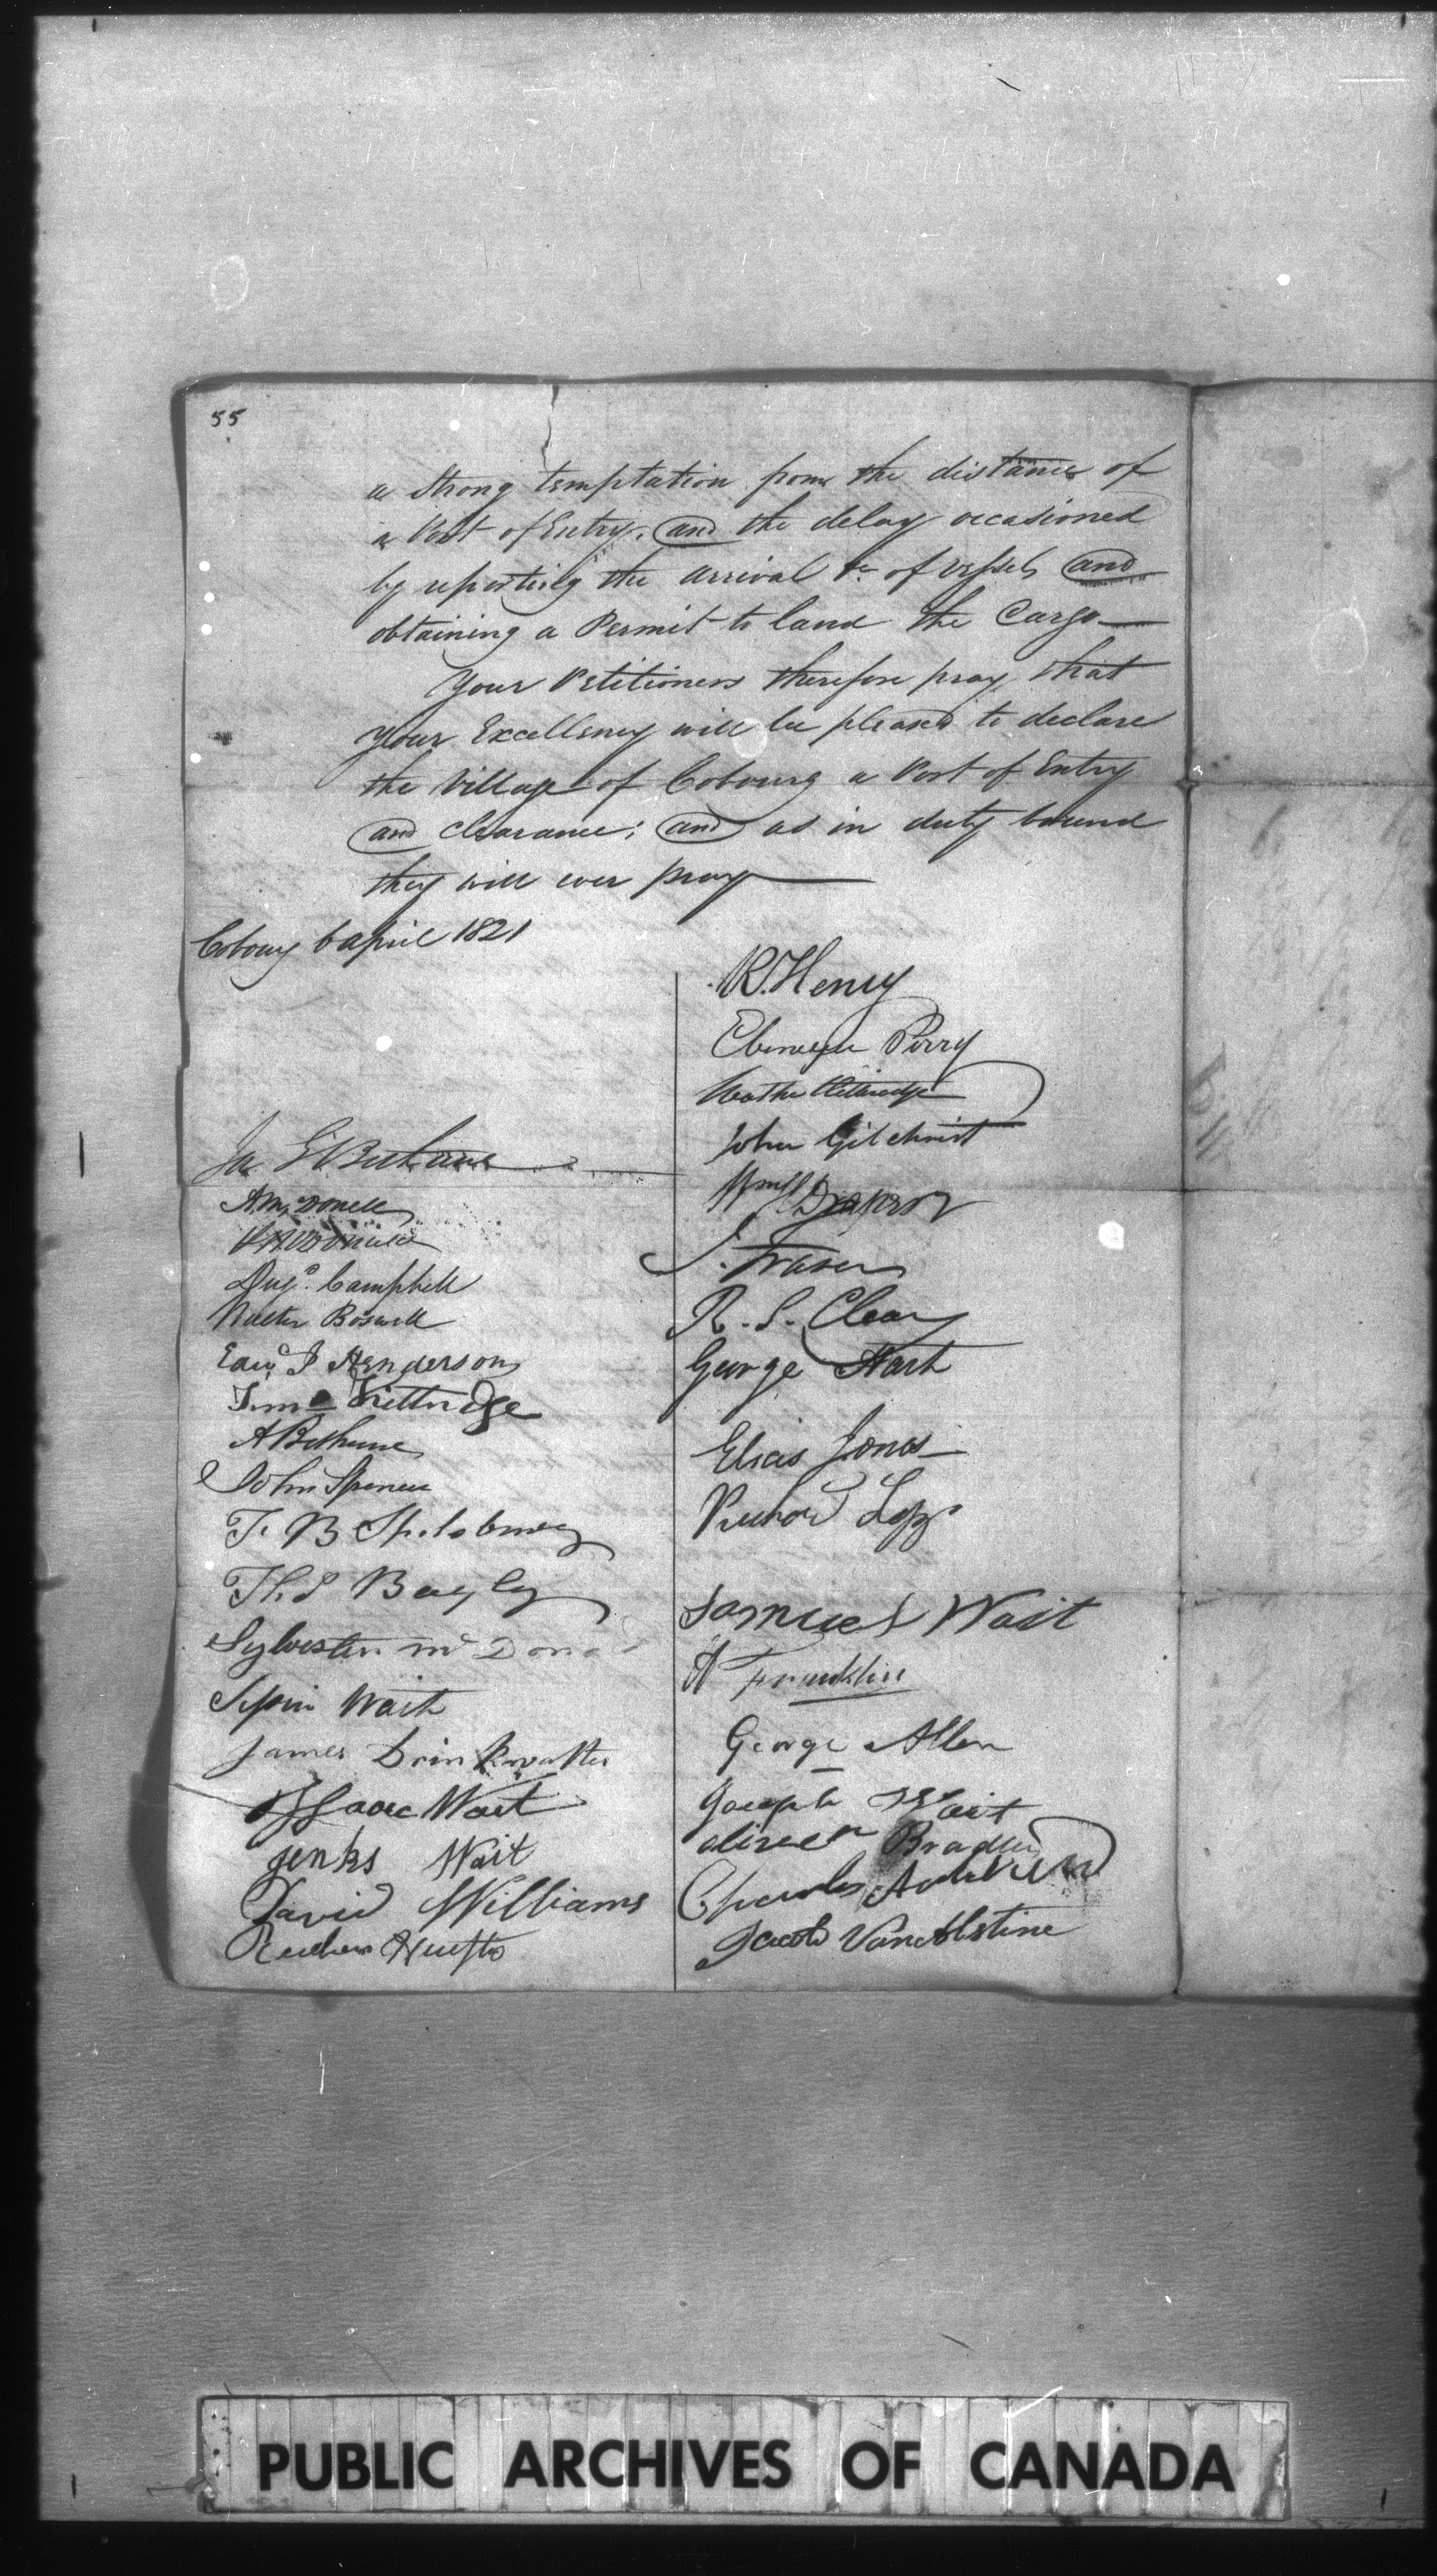 55
a Strong temptation from the distance of
a Port of Entry, and the delay occasioned
by reporting the arrival &c of Vessels and
obtaining a Permit to land the Cargo—
Your Petitioners therefore pray, that
Your Excellency will be pleased to declare
the Village of Cobourg a Port of Entry
and clearance; and as in duty bound
they will ever pray—
Cobourg 6 April 1821
Jn G Bethune
A McDonell
McDonell
Dugd. Campbell
Walter Boswell
Edwd J Henderson
Kittridge
A Bethune
John Spencer
F. B Spilsbury
Thos Bagley
Sylvester Mc Dona
Wait
James Drinkwatter
Isaac Wait
Jenks Wait
David Williams
Reuben
R. Henry
Ebenezer Perry
Kittredge
John Gilchrist
Draper
J. Fraser
R. S. Cleary
George Hart
Elias Jones
Richard
Samuel Wait
Franklin
George Allen
Joseph Wait
Bradley
Charles
Jacob VanAlstine
PUBLIC ARCHIVES OF CANADA